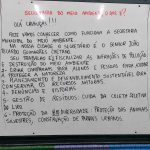 SECRETARIA DO MEIO AMBIENTE O QUE É?
OLÁ CRIANÇAS!!!
HOJE VAMOS CONHECER COMO FUNCIONA A SECRETARIA
MUNICIPAL DO MEIO AMBIENTE.
NA NOSSA CIDADE O SECRETÁRIO É O SENHOR JOÃO
GUIMARÃES CAETANO
SEU TRABALHO É FISCALIZAR AS INFRAÇÕES DE POLUIÇÃO
E DESTRUIÇÃO DO MEIO AMBIENTE
2- CRIAR CAMPANHAS PARA ALUNOS E PESSOAS PARA
PROTEGER A NATUREZA
3- PLANEJAMENTO E DESENVOLVIMENTO SUSTENTÁVEL PARA
CONSERVAR OS RECURSOS NATURAIS
E FUTUROS
5- GESTÃO DE RESÍDUOS: CUIDA DA COLETA SELETIVA
DE LIXO
6- PROTEÇÃO DA BIODIVERSIDADE: PROTEÇÃO DAS ANIMAIS
SILVESTRES, CONSERVAÇÃO DE PARQUES URBANOS